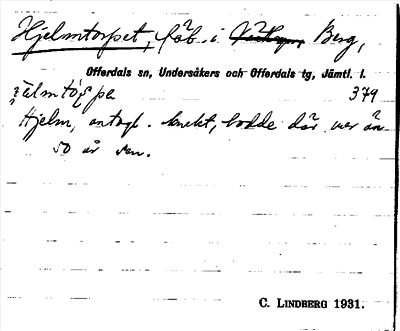 Hjelmtorpet, fäb. i Berg,
Offerdals sn, Undersåkers och Offerdals tg, Jämtl. l.
379
Hjelm, antagl. knekt, bodde där mer än
50 år sen.
C. LINDBERG 1931.